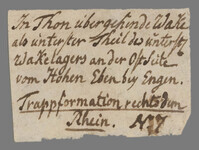 In Thon übergehende Wake
als unterster Theil des untersten
Wakelagers an der Ostseite
vom Hohen Eben bey Engen.
Trappformation rechts dem
Rhein. N 7